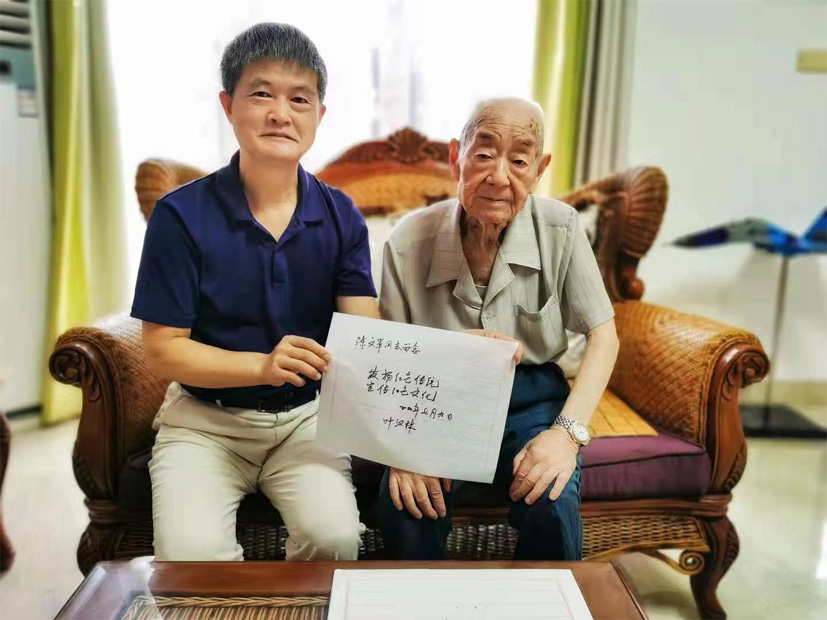 陈文军同志留念
发扬红色传统
宣传红色文化
二〇二〇年七月九日
叶汉林